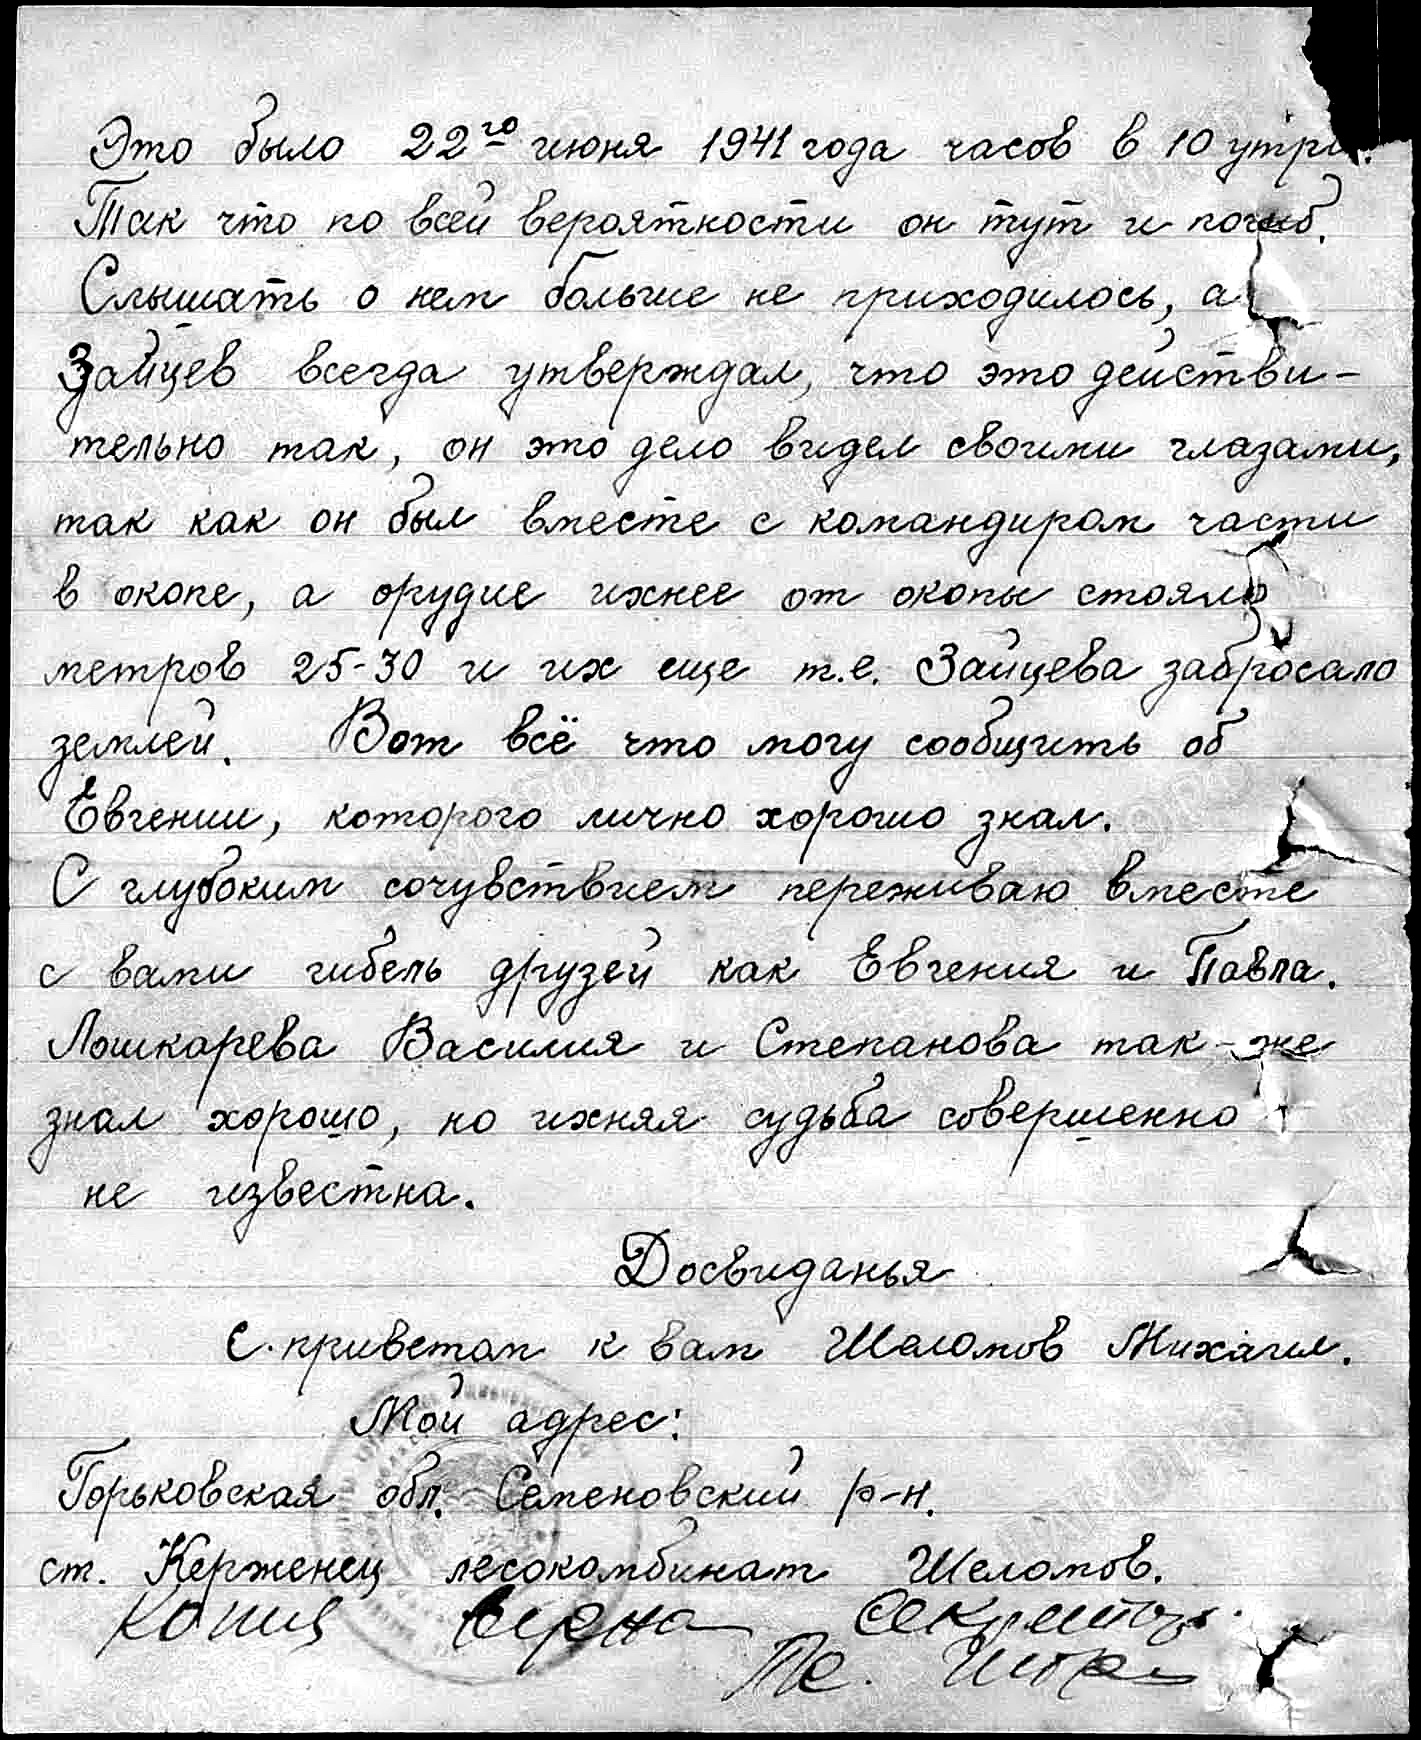 Это было 22го июня 1941 года часов в 10 утра.
Так что по всей вероятности он тут и погиб.
Слышать о нем больше не приходилось, а
Зайцев всегда утверждал, что это действи-
тельно так, он это дело видел своими глазами,
так как он был вместе с командиром части
в окопе, а орудие ихнее от окопы стояло
метров 25-30 и их еще т.е. Зайцева забросало
землей. Вот всё что могу сообщить об
Евгении, которого лично хорошо знал.
С глубоким сочувствием переживаю вместе
с вами гибель друзей как Евгения и Павла.
Лошкарева Василия и Степанова так-же
знал хорошо, но ихняя судьба совершенно
не известна.
Досвиданья
С приветом к вам Шеломов Михаил.
Мой адрес:
Горьковская обл. Семеновский р-н.
ст. Керженец лесокомбинат Шеломов.
Копия верна Секретарь